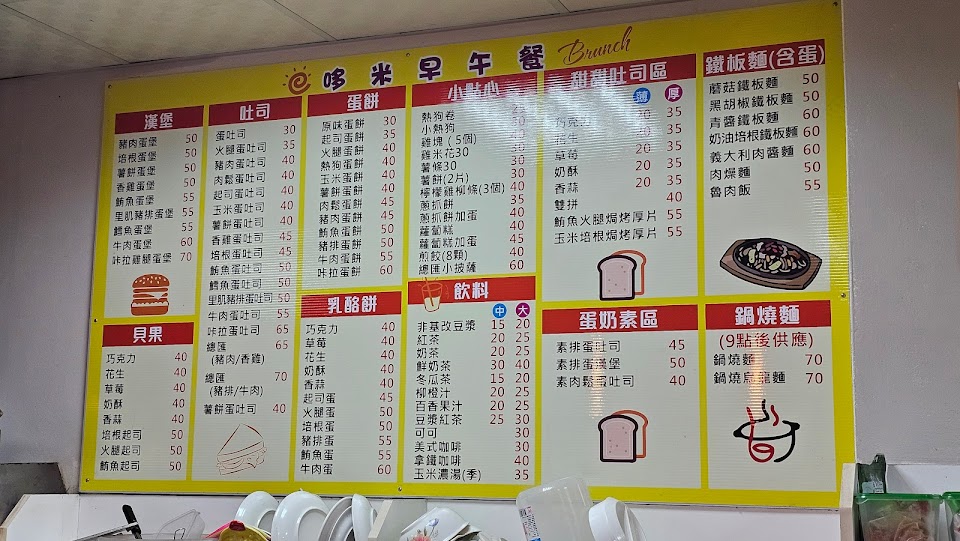 哆米早午餐 Brunch
漢堡
豬肉蛋堡 50
培根蛋堡 50
薯餅蛋堡 50
香雞蛋堡 50
鮪魚蛋堡 55
里肌豬排蛋堡 55
鱈魚蛋堡 55
牛肉蛋堡 60
咔拉雞腿蛋堡 70
貝果
巧克力 40
花生 40
草莓 40
奶酥 40
香蒜 40
培根起司 50
火腿起司 50
鮪魚起司 50
吐司
蛋吐司 30
火腿蛋吐司 35
豬肉蛋吐司 40
肉鬆蛋吐司 40
起司蛋吐司 40
玉米蛋吐司 40
薯餅蛋吐司 40
香雞蛋吐司 45
培根蛋吐司 45
鮪魚蛋吐司 50
鱈魚蛋吐司 50
里肌豬排蛋吐司 50
牛肉蛋吐司 55
咔拉蛋吐司 65
總匯 65
(豬肉/香雞)
總匯 70
(豬排/牛肉)
薯餅蛋吐司 40
蛋餅
原味蛋餅 30
起司蛋餅 35
火腿蛋餅 40
熱狗蛋餅 40
玉米蛋餅 40
薯餅蛋餅 40
肉鬆蛋餅 45
培根蛋餅 45
鮪魚蛋餅 50
豬排蛋餅 50
牛肉蛋餅 55
咔拉蛋餅 60
乳酪餅
巧克力 40
草莓 40
花生 40
奶酥 40
香蒜 40
起司蛋 45
火腿蛋 50
培根蛋 50
豬排蛋 55
鮪魚蛋 55
牛肉蛋 60
小點心
熱狗卷 25
小熱狗 30
雞塊(5個) 30
雞米花30 30
薯條30 30
薯餅(2片) 30
檸檬雞柳條(3個) 40
蔥抓餅 35
蔥抓餅加蛋 40
蘿蔔糕 40
蘿蔔糕加蛋 45
煎餃(8顆) 40
總匯小披薩 60
飲料
中 大
非基改豆漿 15 20
紅茶 20 25
奶茶 20 25
鮮奶茶 30 40
冬瓜茶 15 20
柳橙汁 20 25
百香果汁 20 25
豆漿紅茶 25 30
可可 30
美式咖啡 30
拿鐵咖啡 40
玉米濃湯(季) 35
甜甜吐司區
薄 厚
巧克力 20 35
花生 20 35
草莓 20 35
奶酥 20 35
香蒜 20 35
雙拼 40
鮪魚火腿焗烤厚片 55
玉米培根焗烤厚片 55
蛋奶素區
素排蛋吐司 45
素排蛋漢堡 50
素肉鬆蛋吐司 40
鐵板麵(含蛋)
蘑菇鐵板麵 50
黑胡椒鐵板麵 50
青醬鐵板麵 60
奶油培根鐵板麵 60
義大利肉醬麵 60
肉燥麵 50
魯肉飯 55
鍋燒麵
(9點後供應)
鍋燒麵 70
鍋燒烏龍麵 70